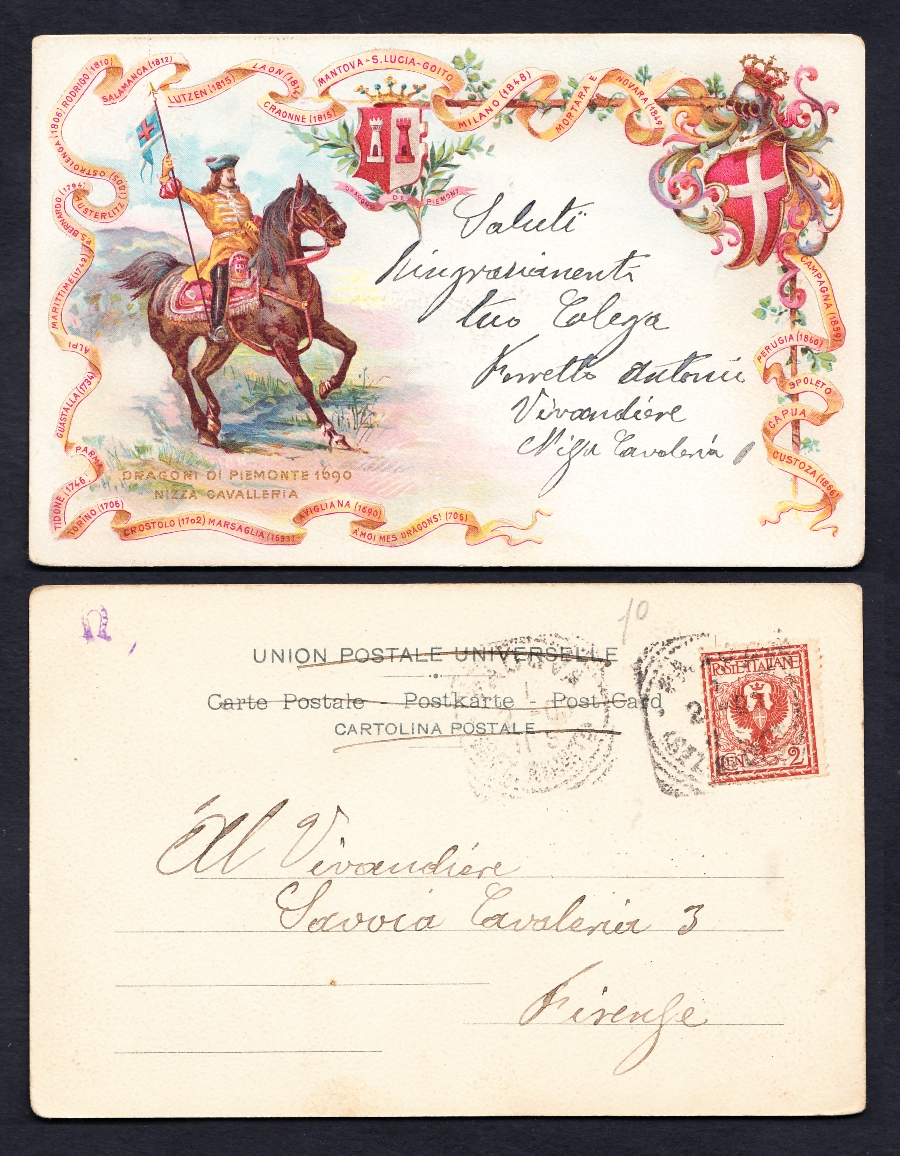 RODRIGO (1810)
SALAMANCA (1812)
LUTZEN (1815)
LAON (1814
CRAONNE (1815)
MANTOVA - S. LUCIA - GOITO
MILANO (1848)
MORTARA E
NOVARA (1849
CAMPAGNA (1859)
PERUGIA (1860)
SPOLETO
CAPUA
CUSTOZA (1866)
OSTROLENGA (1806)
AUSTERLITZ (1805)
BERNARDO (1794)
MARITTIME (1742)
ALPI
GUASTALLA (1734)
PARMA
TIDONE (1746
TORINO (1706)
CROSTOLO (1702) MARSAGLIA (1693)
AVIGLIANA (1690)
A MOI MES DRAGONS! (705)
DRAGONS DE PIEMONT
DRAGONI DI PIEMONTE 1090
NIZZA CAVALLERIA
Saluti
Ringraziamenti
tuo Colega
Ferretto Antonio
Vivandiere
Nizza Cavaleria
10
UNION POSTALE UNIVERSELLE
Carte Postale - Postkarte - Post-Card
CARTOLINA POSTALE
POSTE ITALIANE
CEN. 2
Al Vivandiere
Savoia Cavaleria 3
Firenze